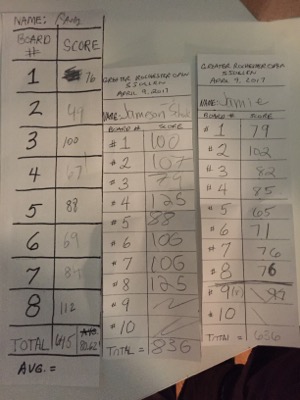 NAME:
BOARD # SCORE
1 76
2 49
3 100
4 67
5 88
6 69
7 84
8 112
TOTAL 645 80.62
AVG. =
GREATER ROCHESTER OPEN
APRIL 9, 2017
NAME:
BOARD # SCORE
# 1 100
# 2 107
# 3 79
# 4 125
# 5 88
# 6 106
# 7 106
# 8 125
# 9
# 10
TOTAL = 836
GREATER ROCHESTER OPEN
APRIL 9, 2017
NAME: Jimmie
BOARD # SCORE
# 1 79
# 2 102
# 3 82
# 4 85
# 5 65
# 6 71
# 7 76
# 8 76
# 9
# 10
TOTAL = 636